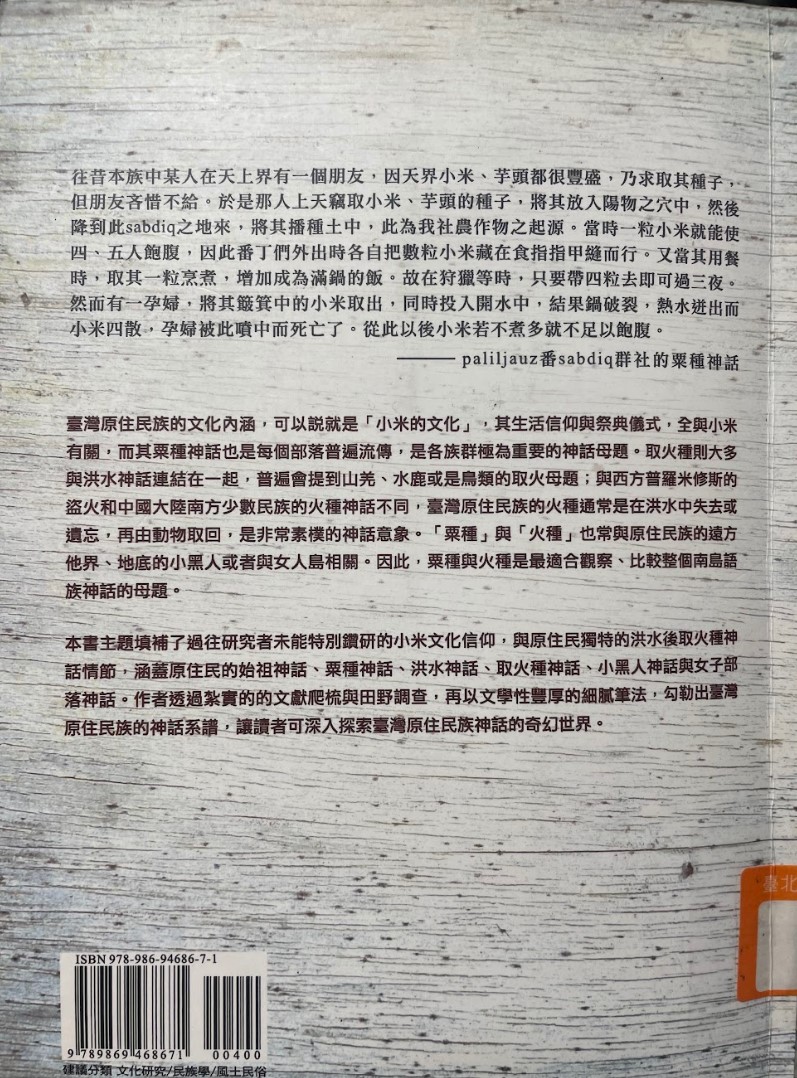 往昔本族中某人在天上界有一個朋友，因天界小米、芋頭都很豐盛，乃求取其種子，
但朋友吝惜不給。於是那人上天竊取小米、芋頭的種子，將其放入陽物之穴中，然後
降到此sabdiq之地來，將其播種土中，此為我社農作物之起源。當時一粒小米就能使
四、五人飽腹，因此番丁們外出時各自把數粒小米藏在食指指甲縫而行。又當其用餐
時，取其一粒烹煮，增加成為滿鍋的飯。故在狩獵等時，只要帶四粒去即可過三夜。
然而有一孕婦，將其簸箕中的小米取出，同時投入開水中，結果鍋破裂，熱水迸出而
小米四散，孕婦被此噴中而死亡了。從此以後小米若不煮多就不足以飽腹。
——paliljauz番sabdiq群社的粟種神話
臺灣原住民族的文化內涵，可以說就是「小米的文化」，其生活信仰與祭典儀式，全與小米
有關，而其粟種神話也是每個部落普遍流傳，是各族群極為重要的神話母題。取火種則大多
與洪水神話連結在一起，普遍會提到山羌、水鹿或是鳥類的取火母題；與西方普羅米修斯的
盜火和中國大陸南方少數民族的火種神話不同，臺灣原住民族的火種通常是在洪水中失去或
遺忘，再由動物取回，是非常素樸的神話意象。「粟種」與「火種」也常與原住民族的遠方
他界、地底的小黑人或者與女人島相關。因此，粟種與火種是最適合觀察、比較整個南島語
族神話的母題。
本書主題填補了過往研究者未能特別鑽研的小米文化信仰，與原住民獨特的洪水後取火種神
話情節，涵蓋原住民的始祖神話、粟種神話、洪水神話、取火種神話、小黑人神話與女子部
落神話。作者透過紮實的的文獻爬梳與田野調查，再以文學性豐厚的細膩筆法，勾勒出臺灣
原住民族的神話系譜，讓讀者可深入探索臺灣原住民族神話的奇幻世界。
臺北
ISBN 978-986-94686-7-1
9 789869 468671 00400
建議分類 文化研究/民族學/風土民俗